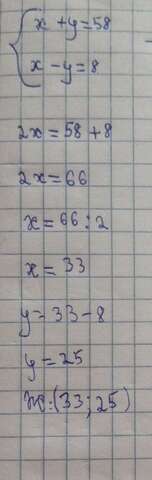 x + y = 58
x - y = 8
2x = 58 + 8
2x = 66
x = 66 : 2
x = 33
y = 33 - 8
y = 25
(33; 25)